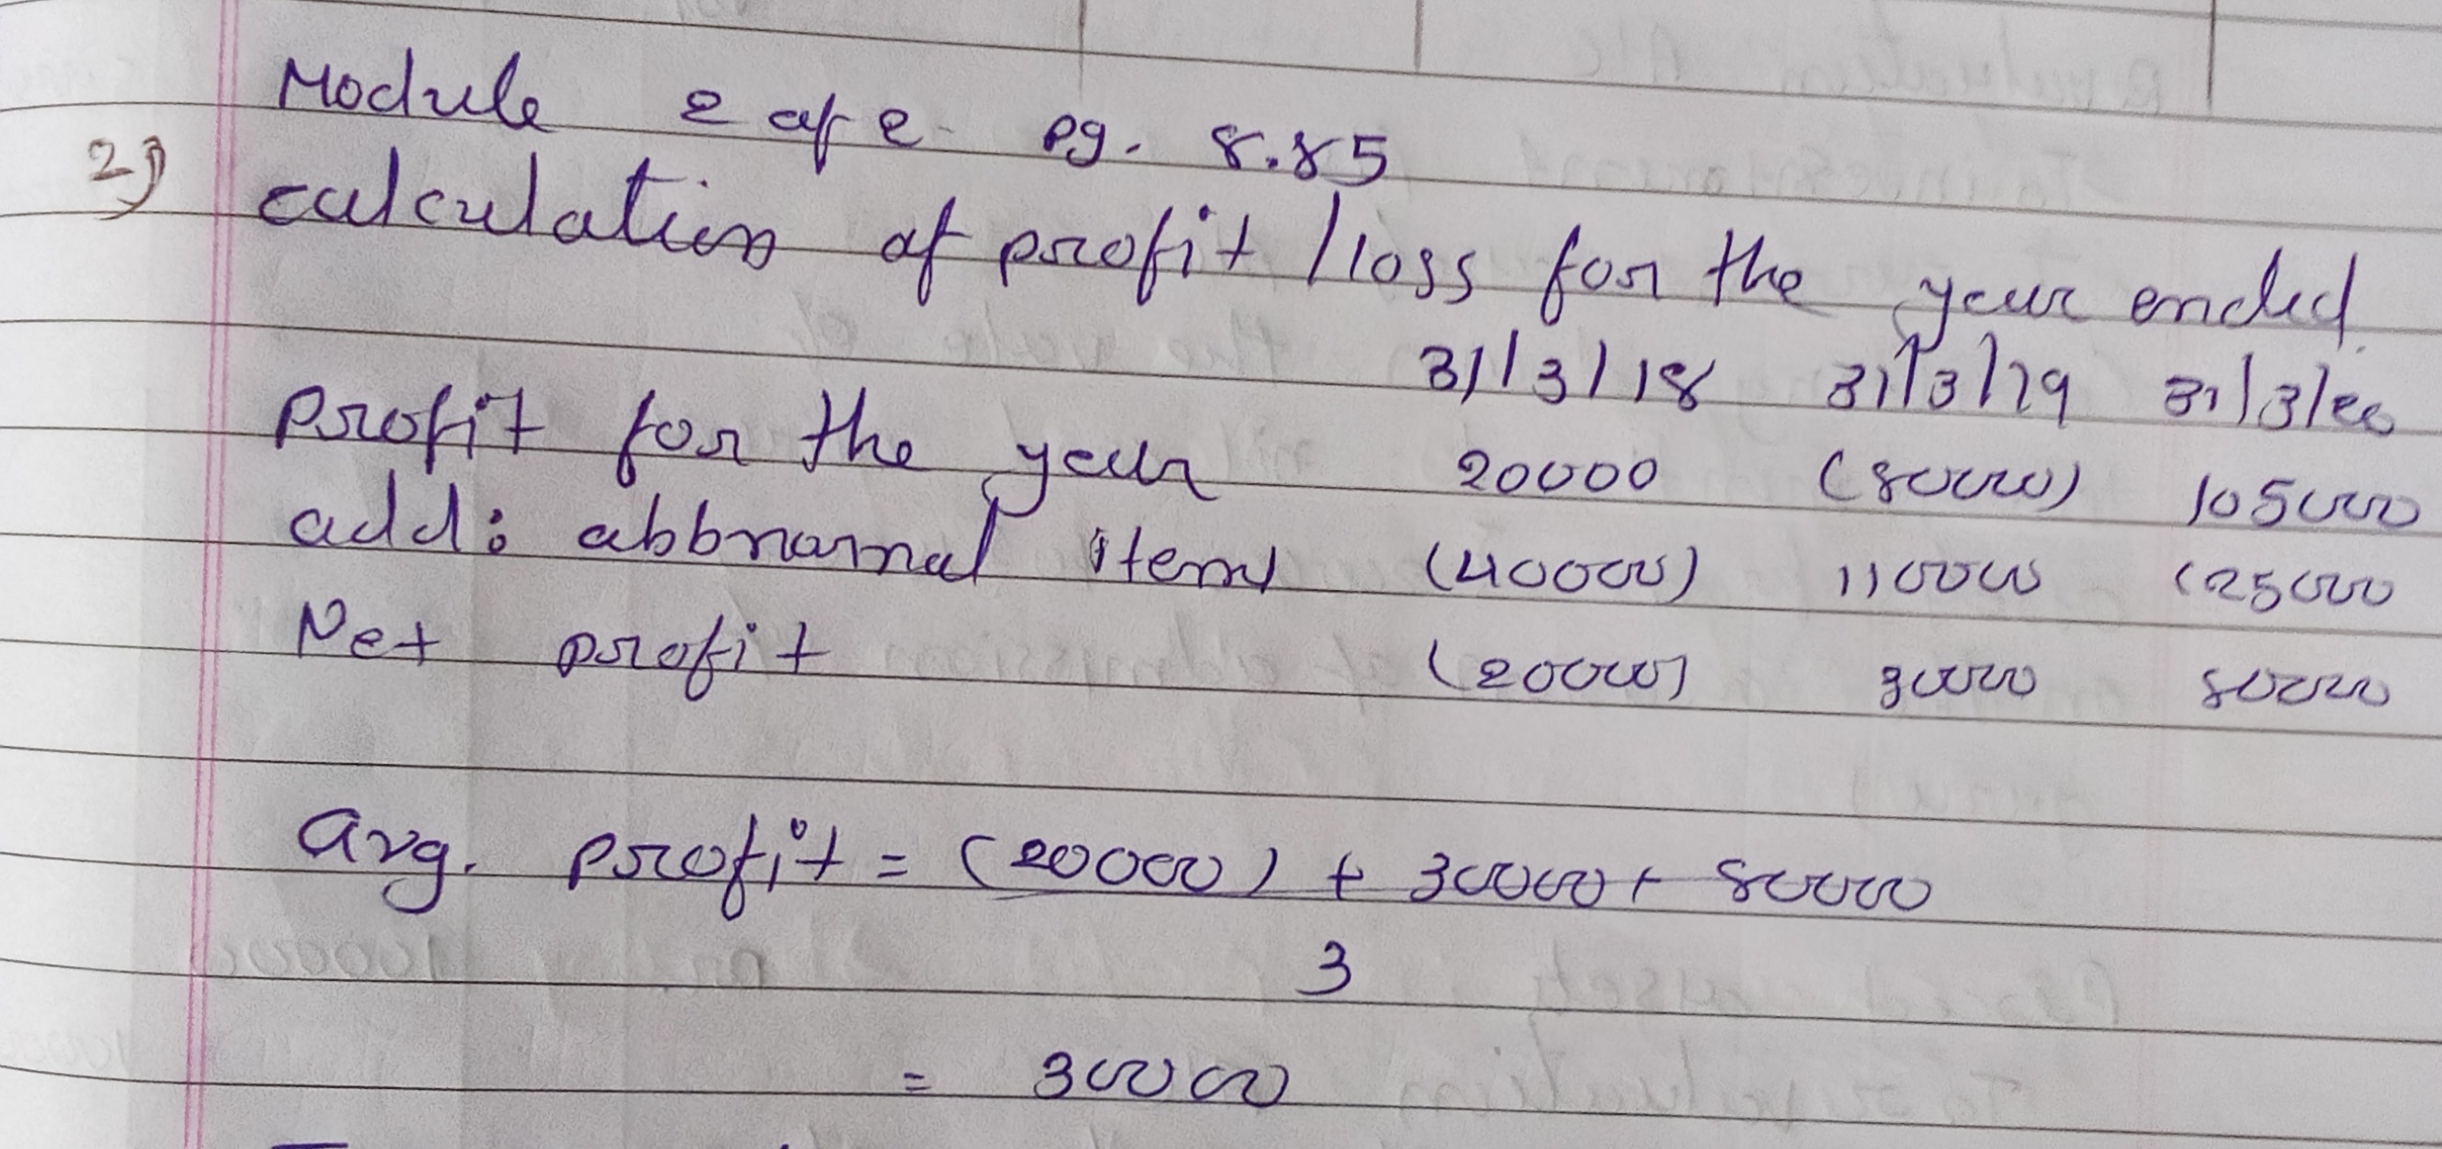 Module 2 of 2 pg. 8.85
2) calculation of profit / loss for the year ended
31/3/18 31/3/19 31/3/20
Profit for the year 20000 (80000) 105000
add: abbnarmal item (40000) 110000 (25000
Net profit (20000) 30000 80000
avg. profit = (20000) + 30000 + 80000
3
= 30000